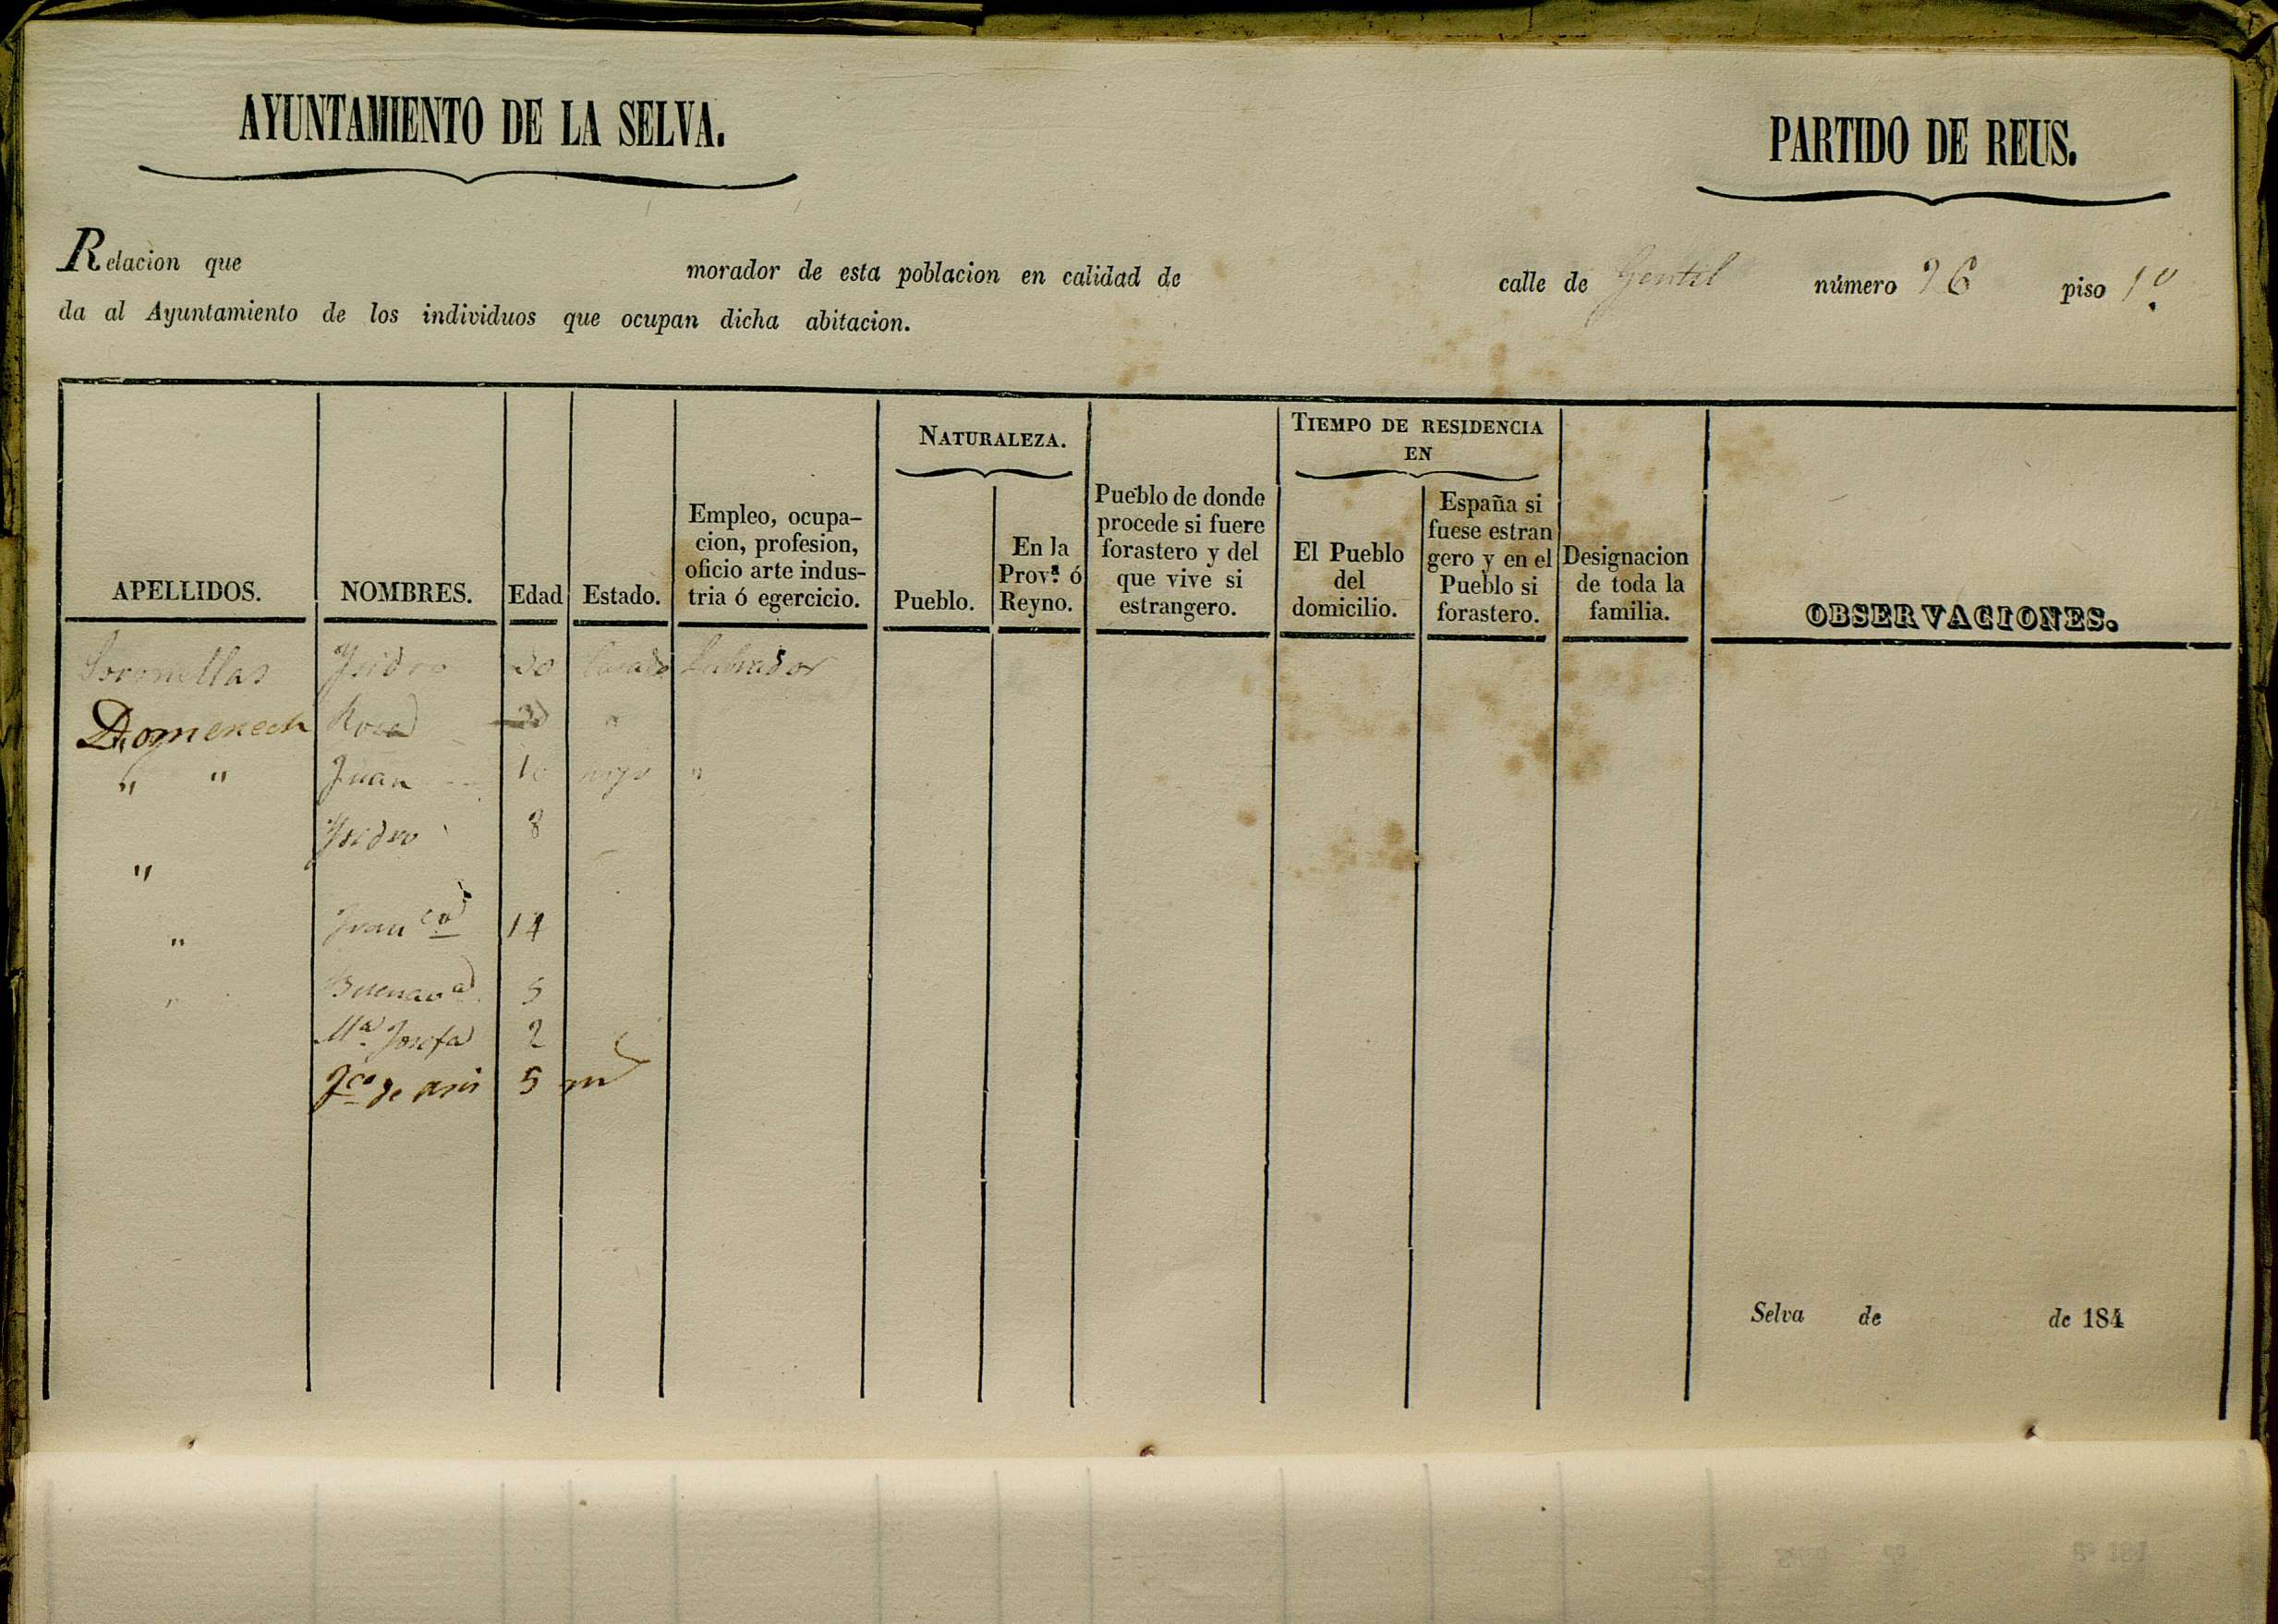 AYUNTAMIENTO DE LA SELVA.
PARTIDO DE REUS.
Relacion que morador de esta poblacion en calidad de calle de Gentil número 26 piso 1º
da al Ayuntamiento de los individuos que ocupan dicha abitacion.
NATURALEZA.
TIEMPO DE RESIDENCIA
EN
APELLIDOS.
NOMBRES.
Edad
Estado.
Empleo, ocupa-
cion, profesion,
oficio arte indus-
tria ó egercicio.
Pueblo.
En la
Provª. ó
Reyno.
Pueblo de donde
procede si fuere
forastero y del
que vive si
estrangero.
El Pueblo
del
domicilio.
España si
fuese estran
gero y en el
Pueblo si
forastero.
Designacion
de toda la
familia.
OBSERVACIONES.
Soronellas Ysidro 30 Casado Labrador
Domenech Rosa "
" " Juan 10 "
Ysidro 8
"
" Franca 14
" Buenava 5
Mª Josefa 2
Fco de asis 5 m
Selva de de 184